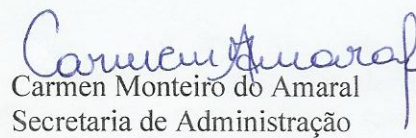 Carmen Amaral
Carmen Monteiro do Amaral
Secretaria de Administração